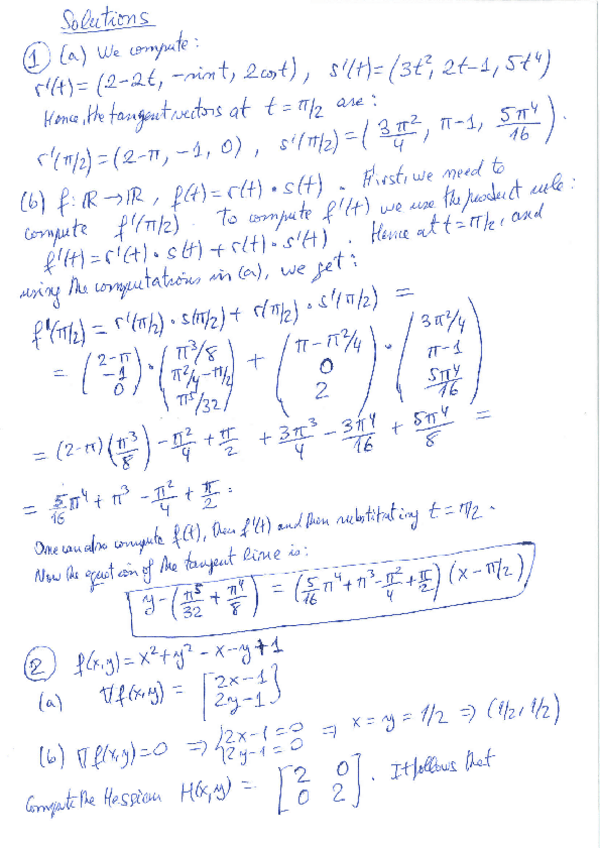 Solutions
① (a) We compute:
r'(t) = (2-2t, -sint, 2cost), s'(t) = (3t², 2t-1, 5t⁴)
Hence, the tangent vectors at t = π/2 are:
r'(π/2) = (2-π, -1, 0), s'(π/2) = (3π²/4, π-1, 5π⁴/16).
(b) f: ℝ → ℝ, f(t) = r(t) • s(t). First, we need to
compute f'(π/2). To compute f'(t) we use the product rule:
f'(t) = r'(t) • s(t) + r(t) • s'(t). Hence at t = π/2, and
using the computations in (a), we get:
f'(π/2) = r'(π/2) • s(π/2) + r(π/2) • s'(π/2) =
= (2-π, -1, 0) • (π³/8, π²/4 - π/2, π⁵/32) + (π - π²/4, 0, 2) • (3π²/4, π-1, 5π⁴/16)
= (2-π)(π³/8) - π²/4 + π/2 + 3π³/4 - 3π⁴/16 + 5π⁴/8 =
= 5/16 π⁴ + π³ - π²/4 + π/2.
One can also compute f(t), then f'(t) and then substituting t = π/2.
Now the equation of the tangent line is:
y - (π⁵/32 + π⁴/8) = (5/16 π⁴ + π³ - π²/4 + π/2)(x - π/2)
② f(x,y) = x² + y² - x - y + 1
(a) ∇f(x,y) = [2x-1, 2y-1]
(b) ∇f(x,y) = 0 ⇒ {2x-1=0, 2y-1=0 ⇒ x = y = 1/2 ⇒ (1/2, 1/2)
Compute the Hessian H(x,y) = [2 0, 0 2]. It follows that